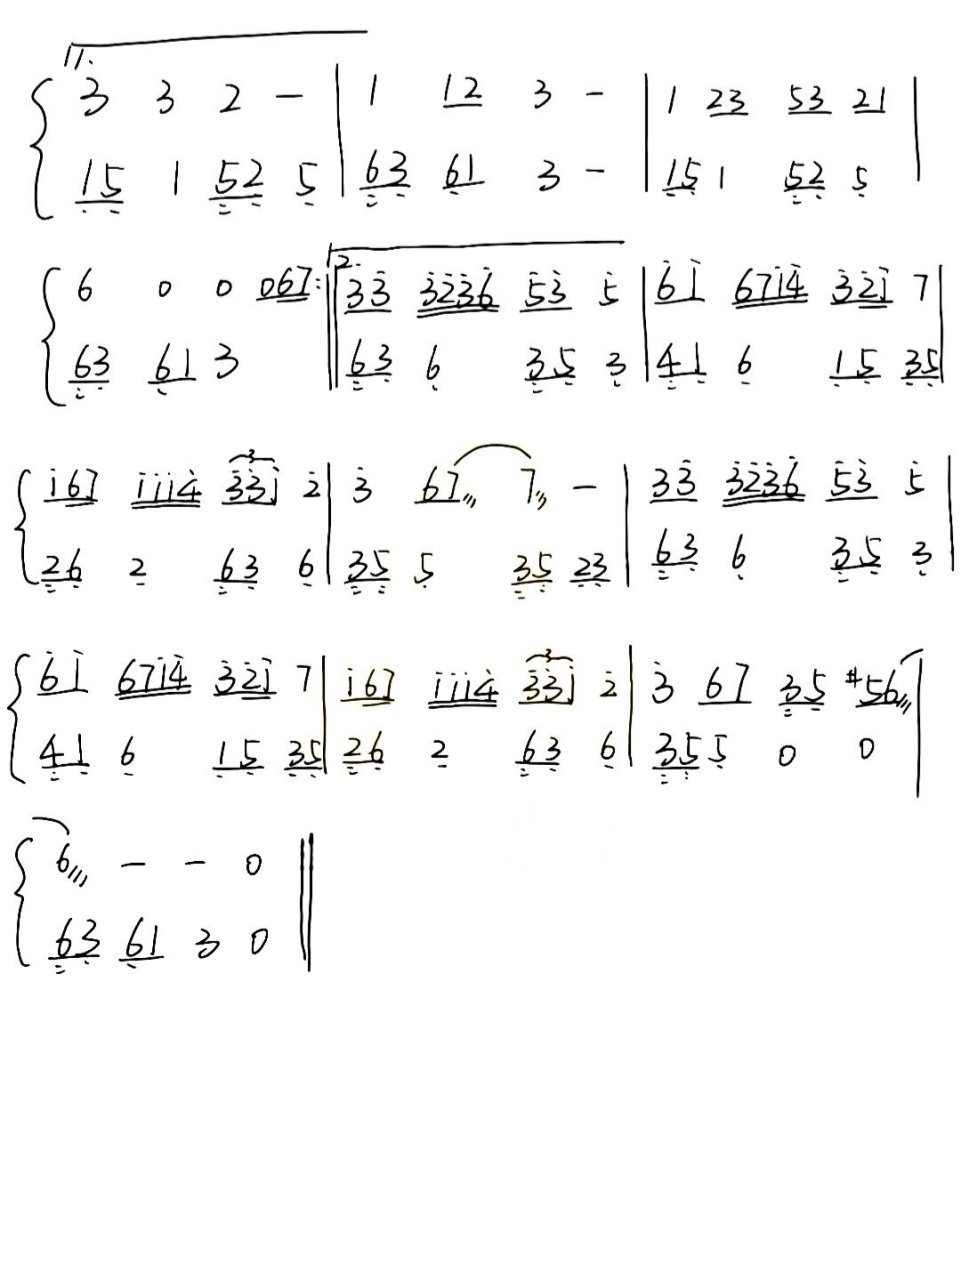 1.
3 3 2 - | 1 12 3 - | 1 23 53 21 |
15 1 52 5 | 63 61 3 - | 15 1 52 5 |
2.
6 0 0 067 :‖ 33 3236 53 5 | 61 6714 321 7 |
63 61 3 ‖ 63 6 35 3 | 41 6 15 35 |
3
167 1114 331 2 | 3 67 7 - | 33 3236 53 5 |
26 2 63 6 | 35 5 35 23 | 63 6 35 3 |
3
61 6714 321 7 | 167 1114 331 2 | 3 67 35 #56 |
41 6 15 35 | 26 2 63 6 | 355 0 0 |
6 - - 0 ‖
63 61 3 0 ‖